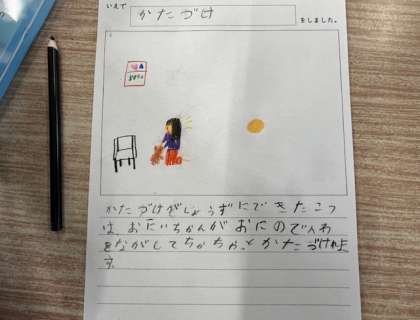 いえで
かたづけ
をしました。
かたづけがじょうずにできたこつ
は、おにいちゃんがおにのでんわ
をながしてちゃちゃっとかたづけれま
す